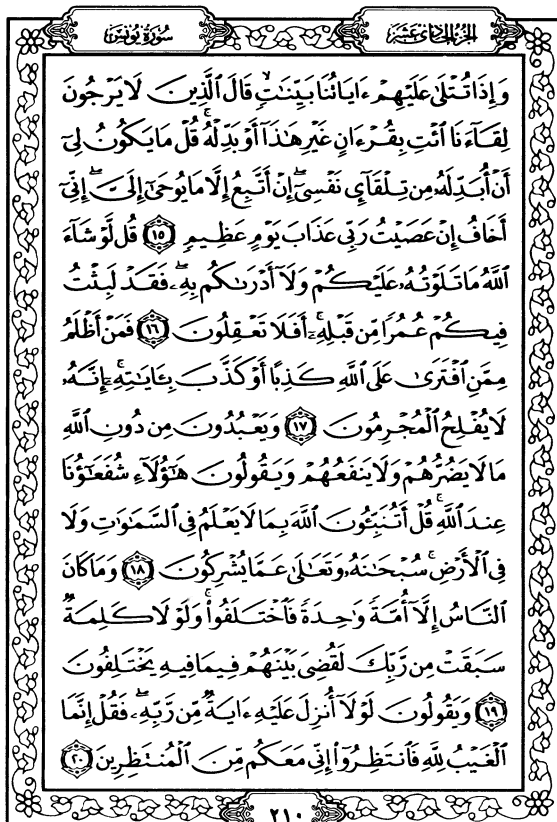 سُورَةُ يُونُسَ
الجُزْءُ الحَادِي عَشَرَ
وَإِذَا تُتْلَىٰ عَلَيْهِمْ ءَايَاتُنَا بَيِّنَٰتٖ قَالَ ٱلَّذِينَ لَا يَرْجُونَ
لِقَآءَنَا ٱئْتِ بِقُرْءَانٍ غَيْرِ هَٰذَآ أَوْ بَدِّلْهُۚ قُلْ مَا يَكُونُ لِيٓ
أَنْ أُبَدِّلَهُۥ مِن تِلْقَآيِٕ نَفْسِيٓۖ إِنْ أَتَّبِعُ إِلَّا مَا يُوحَىٰٓ إِلَيَّۖ إِنِّيٓ
أَخَافُ إِنْ عَصَيْتُ رَبِّي عَذَابَ يَوْمٍ عَظِيمٖ ١٥ قُل لَّوْ شَآءَ
ٱللَّهُ مَا تَلَوْتُهُۥ عَلَيْكُمْ وَلَآ أَدْرَىٰكُم بِهِۦۖ فَقَدْ لَبِثْتُ
فِيكُمْ عُمُرٗا مِّن قَبْلِهِۦٓۚ أَفَلَا تَعْقِلُونَ ١٦ فَمَنْ أَظْلَمُ
مِمَّنِ ٱفْتَرَىٰ عَلَى ٱللَّهِ كَذِبًا أَوْ كَذَّبَ بِـَٔايَٰتِهِۦٓۚ إِنَّهُۥ
لَا يُفْلِحُ ٱلْمُجْرِمُونَ ١٧ وَيَعْبُدُونَ مِن دُونِ ٱللَّهِ
مَا لَا يَضُرُّهُمْ وَلَا يَنفَعُهُمْ وَيَقُولُونَ هَٰٓؤُلَآءِ شُفَعَٰٓؤُنَا
عِندَ ٱللَّهِۚ قُلْ أَتُنَبِّـُٔونَ ٱللَّهَ بِمَا لَا يَعْلَمُ فِي ٱلسَّمَٰوَٰتِ وَلَا
فِي ٱلْأَرْضِۚ سُبْحَٰنَهُۥ وَتَعَٰلَىٰ عَمَّا يُشْرِكُونَ ١٨ وَمَا كَانَ
ٱلنَّاسُ إِلَّآ أُمَّةٗ وَٰحِدَةٗ فَٱخْتَلَفُواْۚ وَلَوْلَا كَلِمَةٞ
سَبَقَتْ مِن رَّبِّكَ لَقُضِيَ بَيْنَهُمْ فِيمَا فِيهِ يَخْتَلِفُونَ
١٩ وَيَقُولُونَ لَوْلَآ أُنزِلَ عَلَيْهِ ءَايَةٞ مِّن رَّبِّهِۦۖ فَقُلْ إِنَّمَا
ٱلْغَيْبُ لِلَّهِ فَٱنتَظِرُوٓاْ إِنِّي مَعَكُم مِّنَ ٱلْمُنتَظِرِينَ ٢٠
٢١٠